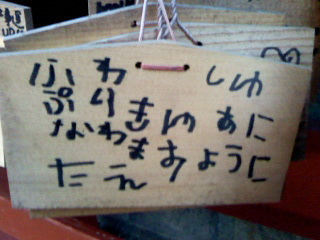 ふわ しゆ
ぷりきゆあに
なわますように
たえ